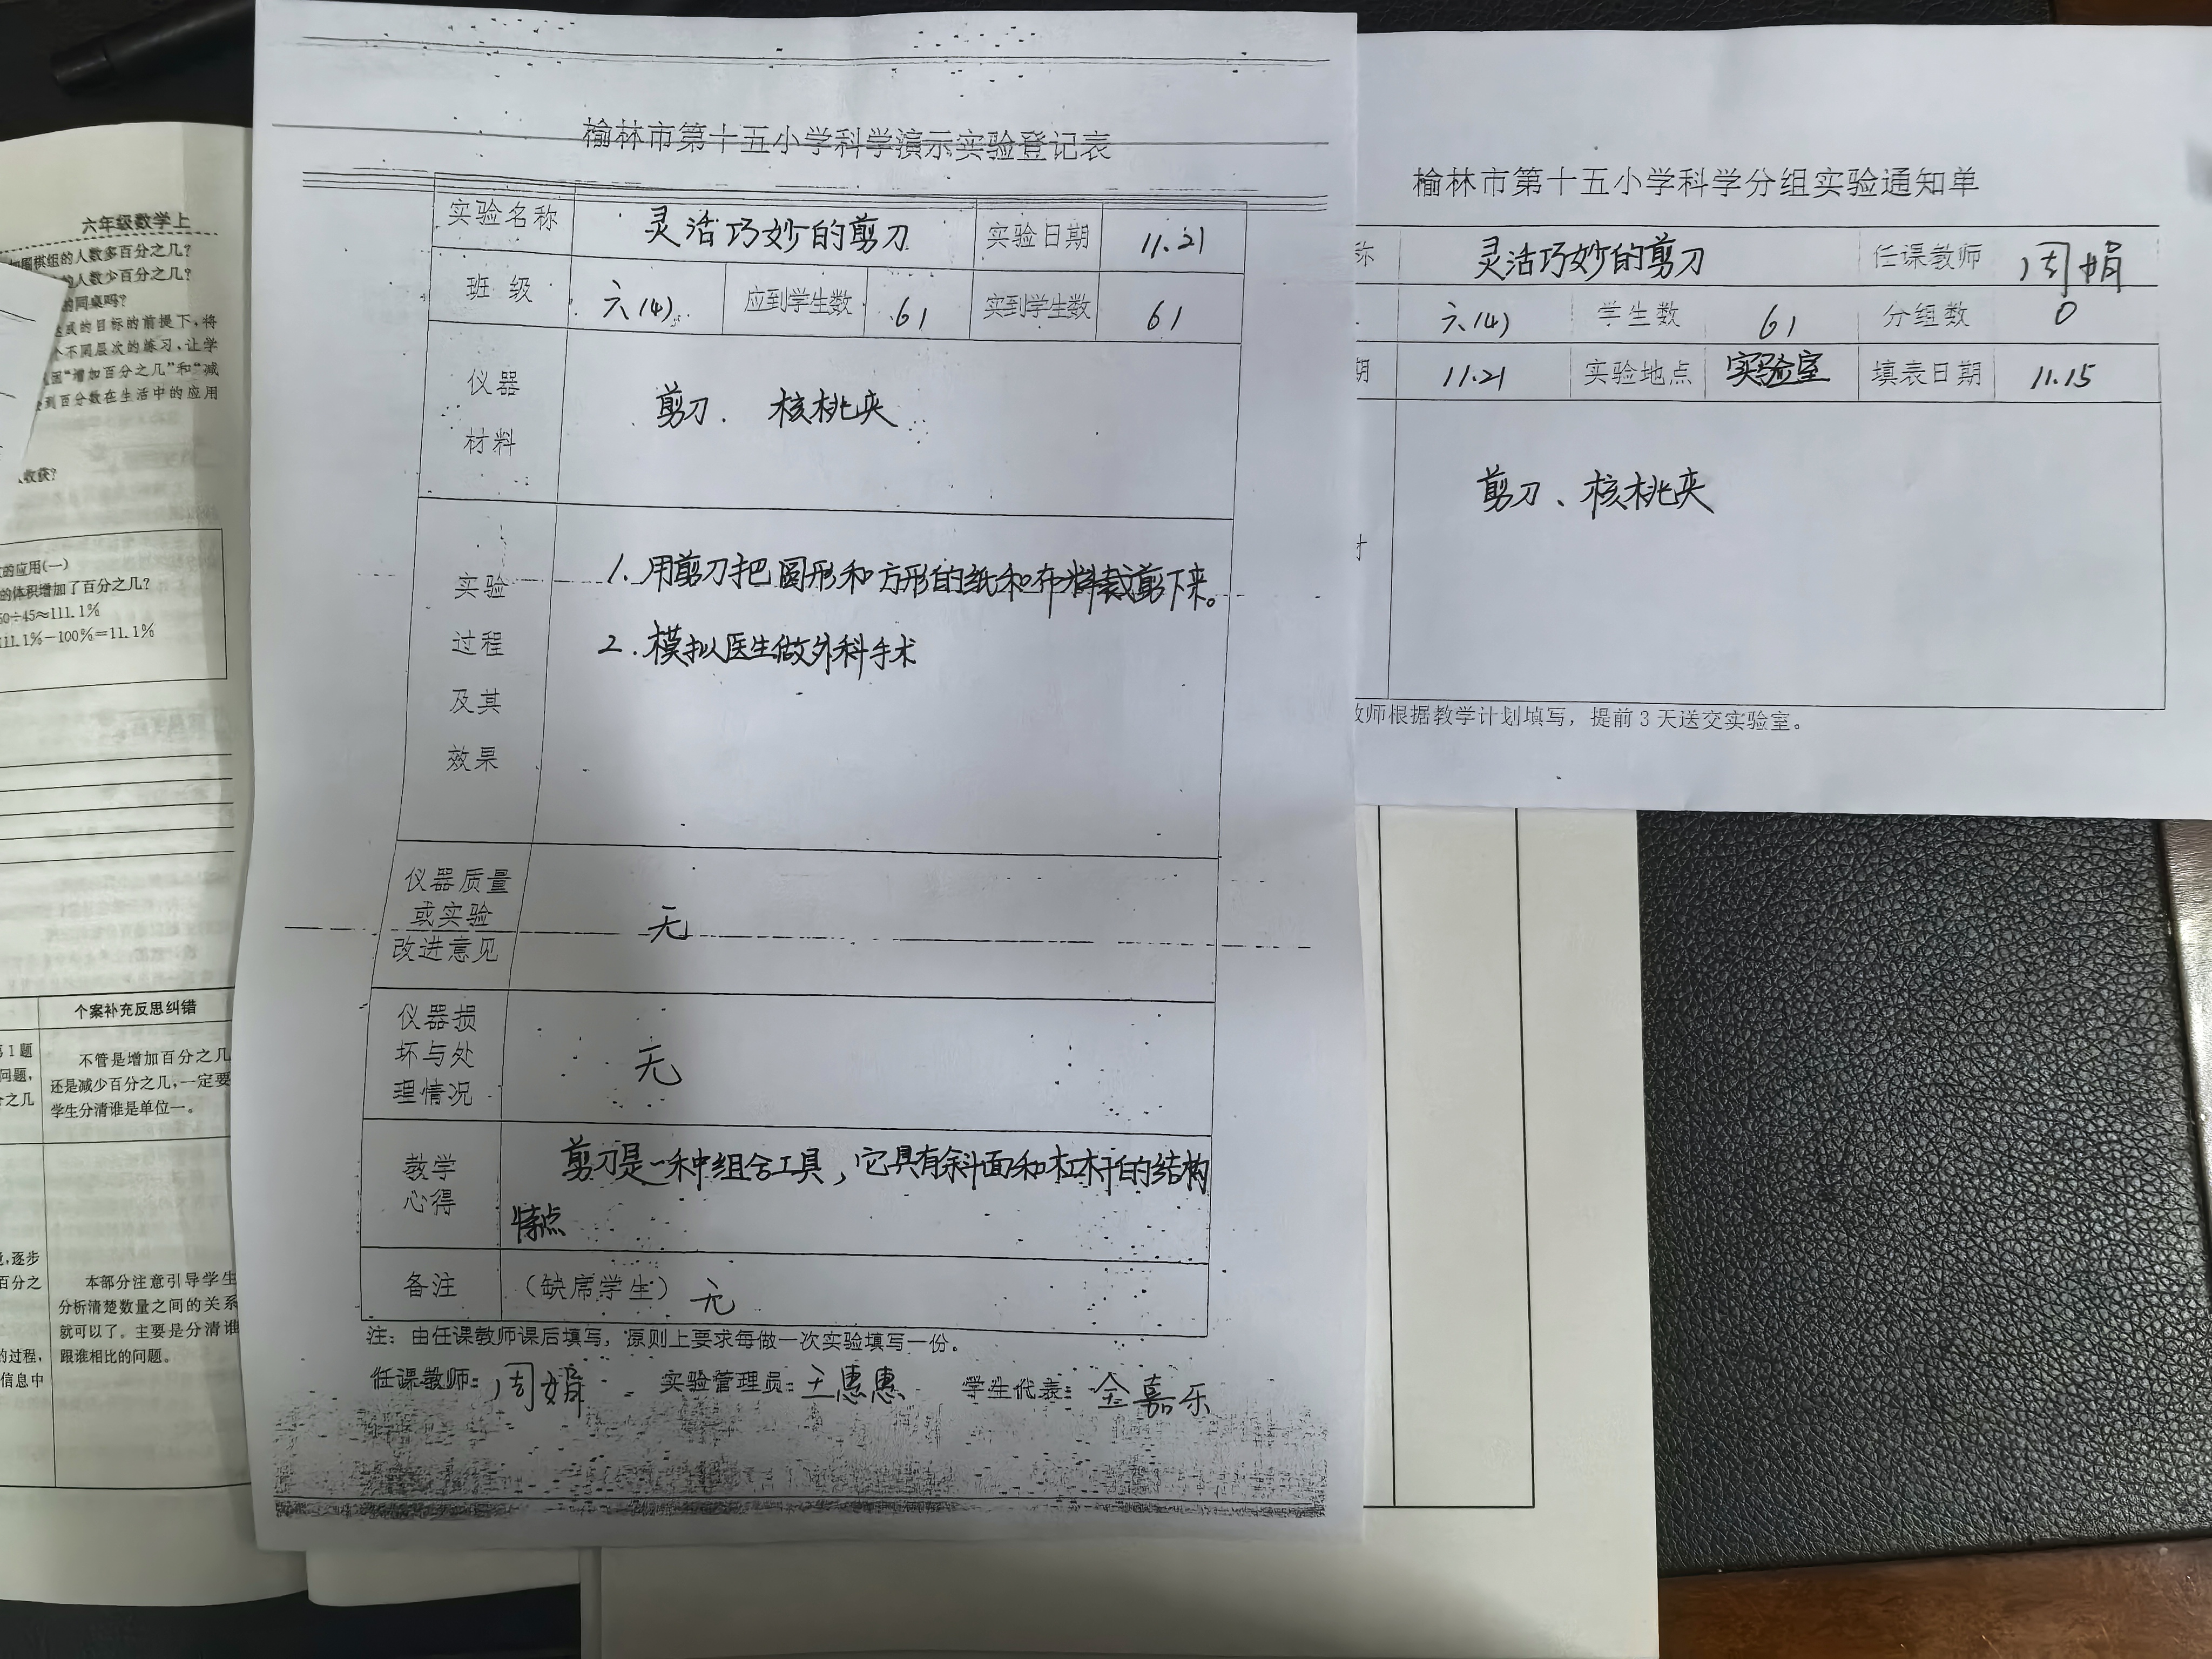 六年级数学上
如围棋组的人数多百分之几?
的人数少百分之几?
的同桌吗?
的目标的前提下,将
个不同层次的练习,让学
“增加百分之几”和“减
到百分数在生活中的应用
收获?
的应用(一)
的体积增加了百分之几?
50÷45≈111.1%
111.1%-100%=11.1%
个案补充反思纠错
第1题
问题,
之几
不管是增加百分之几
还是减少百分之几,一定要
学生分清谁是单位一。
逐步
百分之
本部分注意引导学生
分析清楚数量之间的关系
就可以了。主要是分清谁
跟谁相比的问题。
的过程,
信息中
榆林市第十五小学科学演示实验登记表
实验名称 灵活巧妙的剪刀 实验日期 11.21
班 级 六(4) 应到学生数 61 实到学生数 61
仪器
材料
剪刀. 核桃夹
实验
过程
及其
效果
1. 用剪刀把圆形和方形的纸和布料裁剪下来。
2. 模拟医生做外科手术
仪器质量
或实验
改进意见
无
仪器损
坏与处
理情况
无
教学
心得
剪刀是一种组合工具,它具有斜面和杠杆的结构
特点
备注 (缺席学生) 无
注:由任课教师课后填写,原则上要求每做一次实验填写一份。
任课教师:周娟 实验管理员:王惠惠 学生代表:金嘉乐
榆林市第十五小学科学分组实验通知单
称 灵活巧妙的剪刀 任课教师 周娟
六(4) 学生数 61 分组数 0
期 11.21 实验地点 实验室 填表日期 11.15
剪刀、核桃夹
教师根据教学计划填写,提前3天送交实验室。